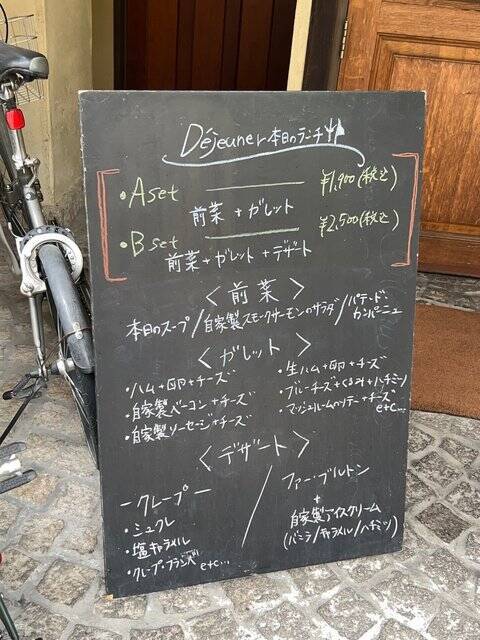 Déjeuner 本日のランチ
・A set ¥1,900(税込)
前菜 + ガレット
・B set ¥2,500(税込)
前菜 + ガレット + デザート
＜前菜＞
本日のスープ / 自家製スモークサーモンのサラダ / パテ・ド・カンパーニュ
＜ガレット＞
・ハム + 卵 + チーズ
・自家製ベーコン + チーズ
・自家製ソーセージ + チーズ
・生ハム + 卵 + チーズ
・ブルーチーズ + くるみ + ハチミツ
・マッシュルームのソテー + チーズ
etc...
＜デザート＞
ークレープー
・シュクレ
・塩キャラメル
・クレープ・フランベ etc...
ファー・ブルトン
+
自家製アイスクリーム
(バニラ/キャラメル/ハチミツ)